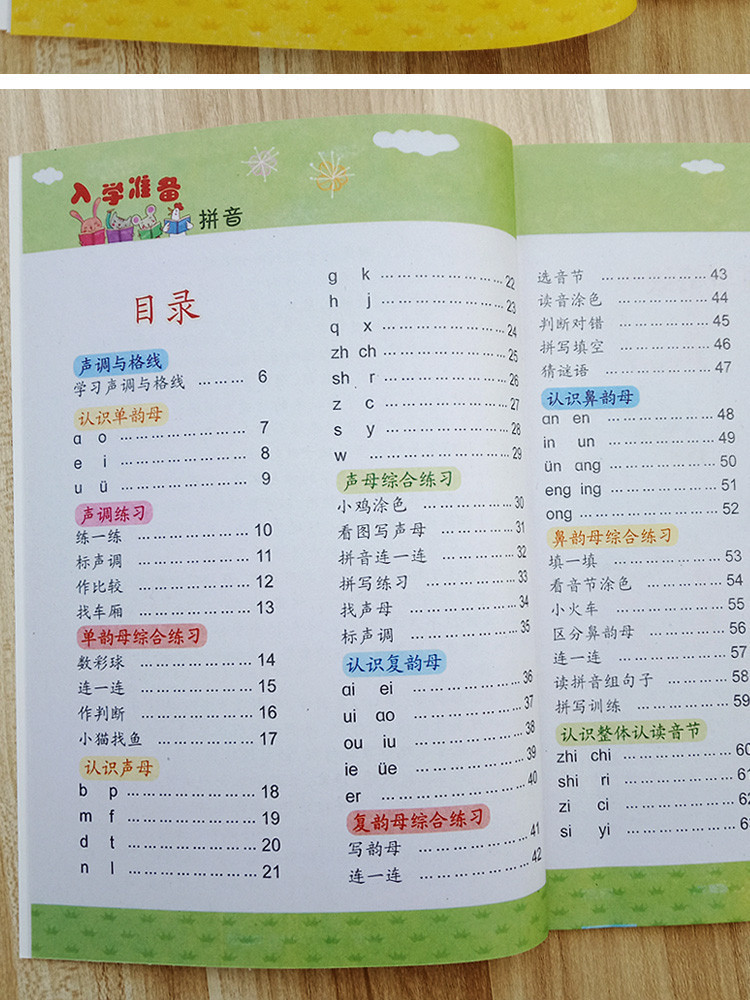 入学准备
拼音
目录
声调与格线
学习声调与格线 ……… 6
认识单韵母
ɑ o ………………… 7
e i ………………… 8
u ü ………………… 9
声调练习
练一练 …………… 10
标声调 …………… 11
作比较 …………… 12
找车厢 …………… 13
单韵母综合练习
数彩球 …………… 14
连一连 …………… 15
作判断 …………… 16
小猫找鱼 ………… 17
认识声母
b p ………………… 18
m f ………………… 19
d t ………………… 20
n l ………………… 21
g k ………………… 22
h j ………………… 23
q x ………………… 24
zh ch ……………… 25
sh r ……………… 26
z c ………………… 27
s y ………………… 28
w …………………… 29
声母综合练习
小鸡涂色 ………… 30
看图写声母 ……… 31
拼音连一连 ……… 32
拼写练习 ………… 33
找声母 …………… 34
标声调 …………… 35
认识复韵母
ɑi ei ……………… 36
ui ɑo ……………… 37
ou iu ……………… 38
ie üe ……………… 39
er ………………… 40
复韵母综合练习
写韵母 …………… 41
连一连 …………… 42
选音节 …………… 43
读音涂色 ………… 44
判断对错 ………… 45
拼写填空 ………… 46
猜谜语 …………… 47
认识鼻韵母
ɑn en …………… 48
in un …………… 49
ün ɑng ………… 50
eng ing ………… 51
ong ……………… 52
鼻韵母综合练习
填一填 …………… 53
看音节涂色 ……… 54
小火车 …………… 55
区分鼻韵母 ……… 56
连一连 …………… 57
读拼音组句子 …… 58
拼写训练 ………… 59
认识整体认读音节
zhi chi ………… 60
shi ri …………
zi ci …………
si yi …………